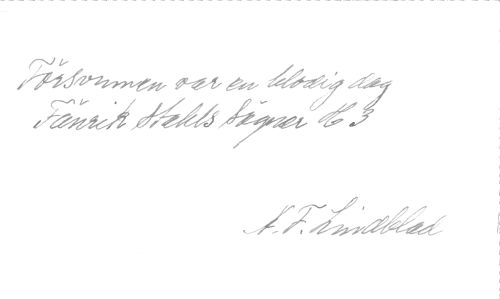 Försvunnen var en blodig dag
Fänrik Ståhls Sägner H 3
N. F. Lindblad